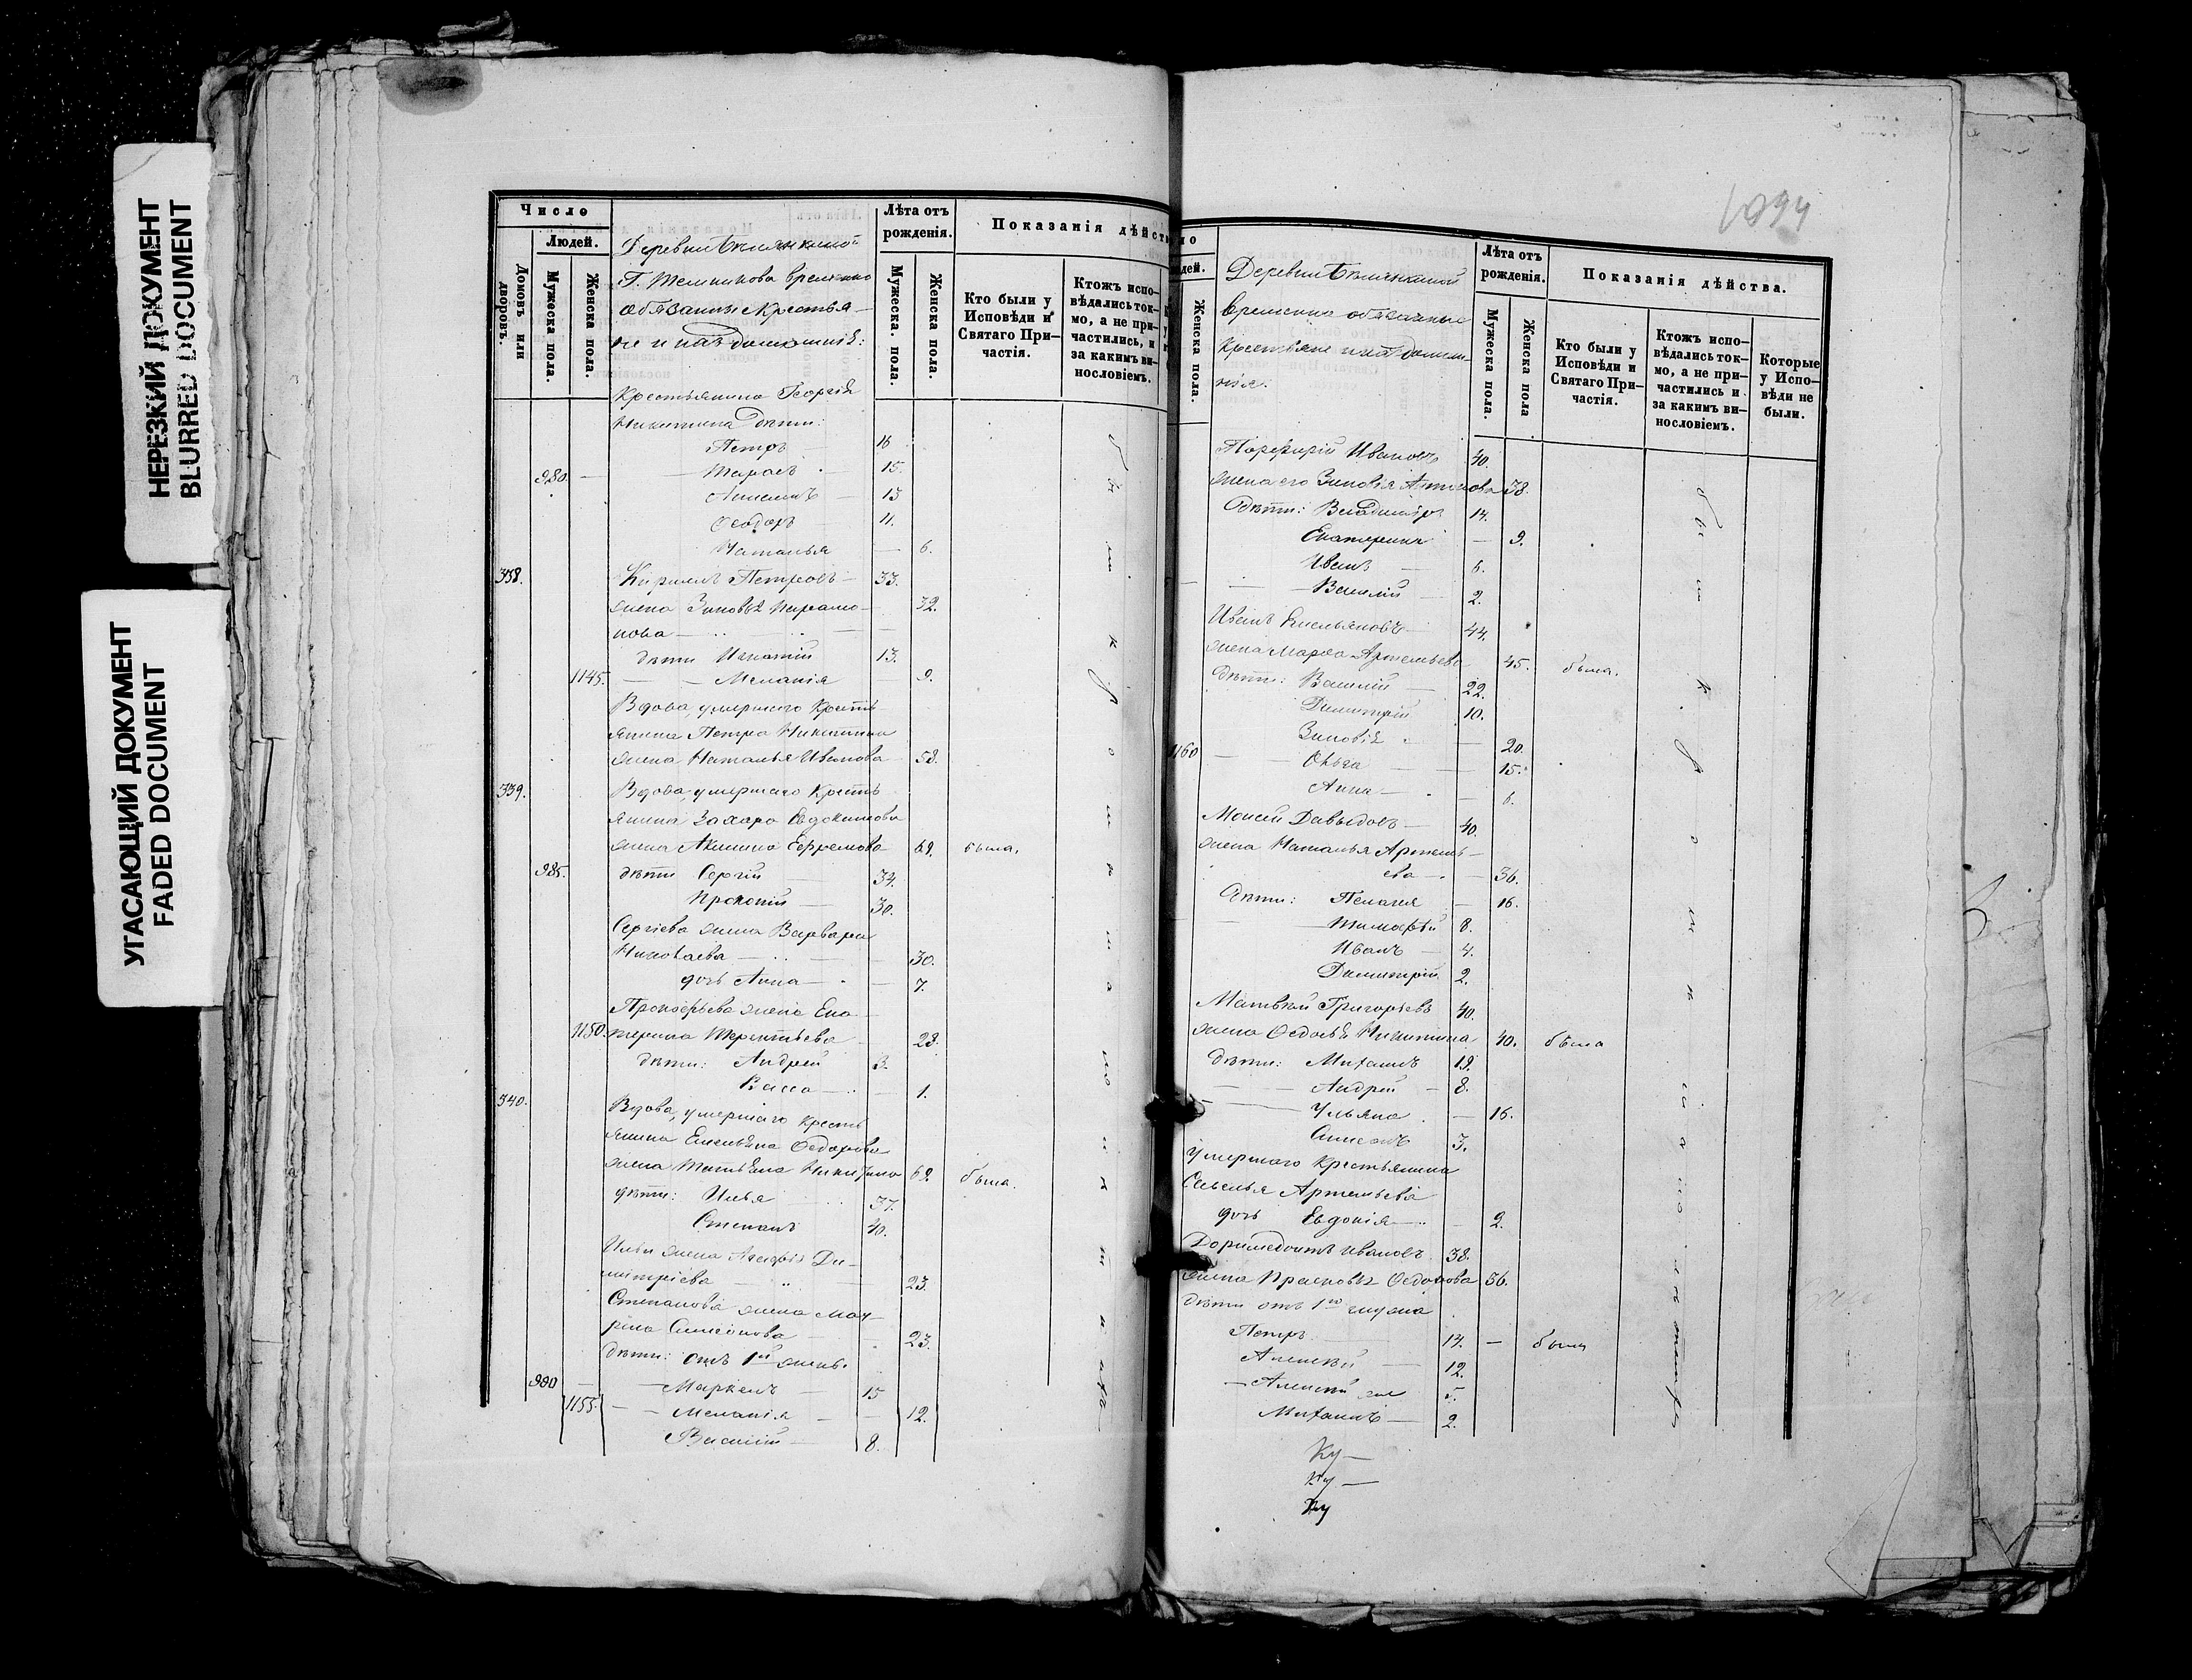 НЕРЕЗКИЙ ДОКУМЕНТ
BLURRED DOCUMENT
УГАСАЮЩИЙ ДОКУМЕНТ
FADED DOCUMENT
Число
Людей.
Домовъ или дворовъ.
Мужеска пола.
Женска пола.
Деревни
временно
обязанные Крестья-
не и ихъ домашніе:
Лѣта отъ рожденія.
Мужеска. пола.
Женска пола.
Показанія дѣйств
Кто были у Исповѣди и Святаго При-
частія.
Ктожъ испо-
вѣдались ток-
мо, а не при-
частились, и
за какимъ ви-
нословіемъ.
Крестьянина Георгія
Никитина дѣти:
Петръ 16
980. — Тарасъ 15.
13
Ѳеодоръ 11.
Наталья — 6.
338. Кириллъ Петровъ — 33.
жена Зиновья Парамо- 32.
нова —
дѣти Игнатій 13.
1145. — Меланія — 9.
Вдова, умершаго Кресть-
янина Петра Никитина
жена Наталья Иванова 58.
339. Вдова, умершаго Кресть-
янина Захара Евдокимова
жена Акилина Ефремова 62. была.
985. дѣти Сергій 34.
Прокопій — 30.
Сергіева жена Варвара
Николаева — 30.
дочь Анна — 7.
Прокофьева жена Ека-
1150. терина Терентьева 28.
дѣти: Андрей 3.
Васса — 1.
340. Вдова, умершаго кресть-
янина Емельяна Ѳедорова
жена Татьяна Никитина 62 была.
дѣти: Илья 37.
Степанъ 40.
Ильи жена Агафія Ди-
митріева — 23.
Степанова жена Мат-
рена Симеонова — 23.
дѣти: отъ 1й жены.
990 — Маркелъ — 15
1155. — Меланія — 12.
Василій — 8.
1094
Женска пола.
Деревни
временно обязанные
крестьяне и ихъ домаш-
нія:
Лѣта отъ рожденія.
Мужеска пола.
Женска пола
Показанія дѣйства.
Кто были у Исповѣди и Святаго При-
частія.
Ктожъ испо-
вѣдались ток-
мо, а не при-
частились и
за какимъ ви-
нословіемъ.
Которые у Испо-
вѣди не были.
Порфирій Ивановъ 40.
жена его Зиновія 38.
Дѣти: Владиміръ 14.
Екатерина — 9.
Иванъ — 6.
Василій — 2.
Иванъ Емельяновъ — 44.
жена Марѳа Артемьева 45. была.
Дѣти: Василій — 22.
Димитрій 10.
Зиновія — 20.
1160 — Ольга — 15.
Анна — 6.
Моисей Давыдовъ — 40.
жена Наталья Артемь-
ева — 36.
Дѣти: Пелагея — 16.
Тимофѣй 8.
Иванъ — 4.
Димитрій 2.
Матвѣй Григорьевъ 40.
жена Ѳедосья Никитина 40. была
Дѣти: Михаилъ 19.
— Андрей — 8.
Ульяна — 16.
Симеонъ 3.
Умершаго крестьянина
Савелья Артемьева
дочь Евдокія — 2.
Доримедонтъ Ивановъ 38.
жена Прасковья Ѳедотова 36.
дѣти отъ 1го мужа
Петръ 14. — были
Алексѣй — 12.
— Алексѣй же 5.
Михаилъ — 2.
Ку —
Ку —
Ку